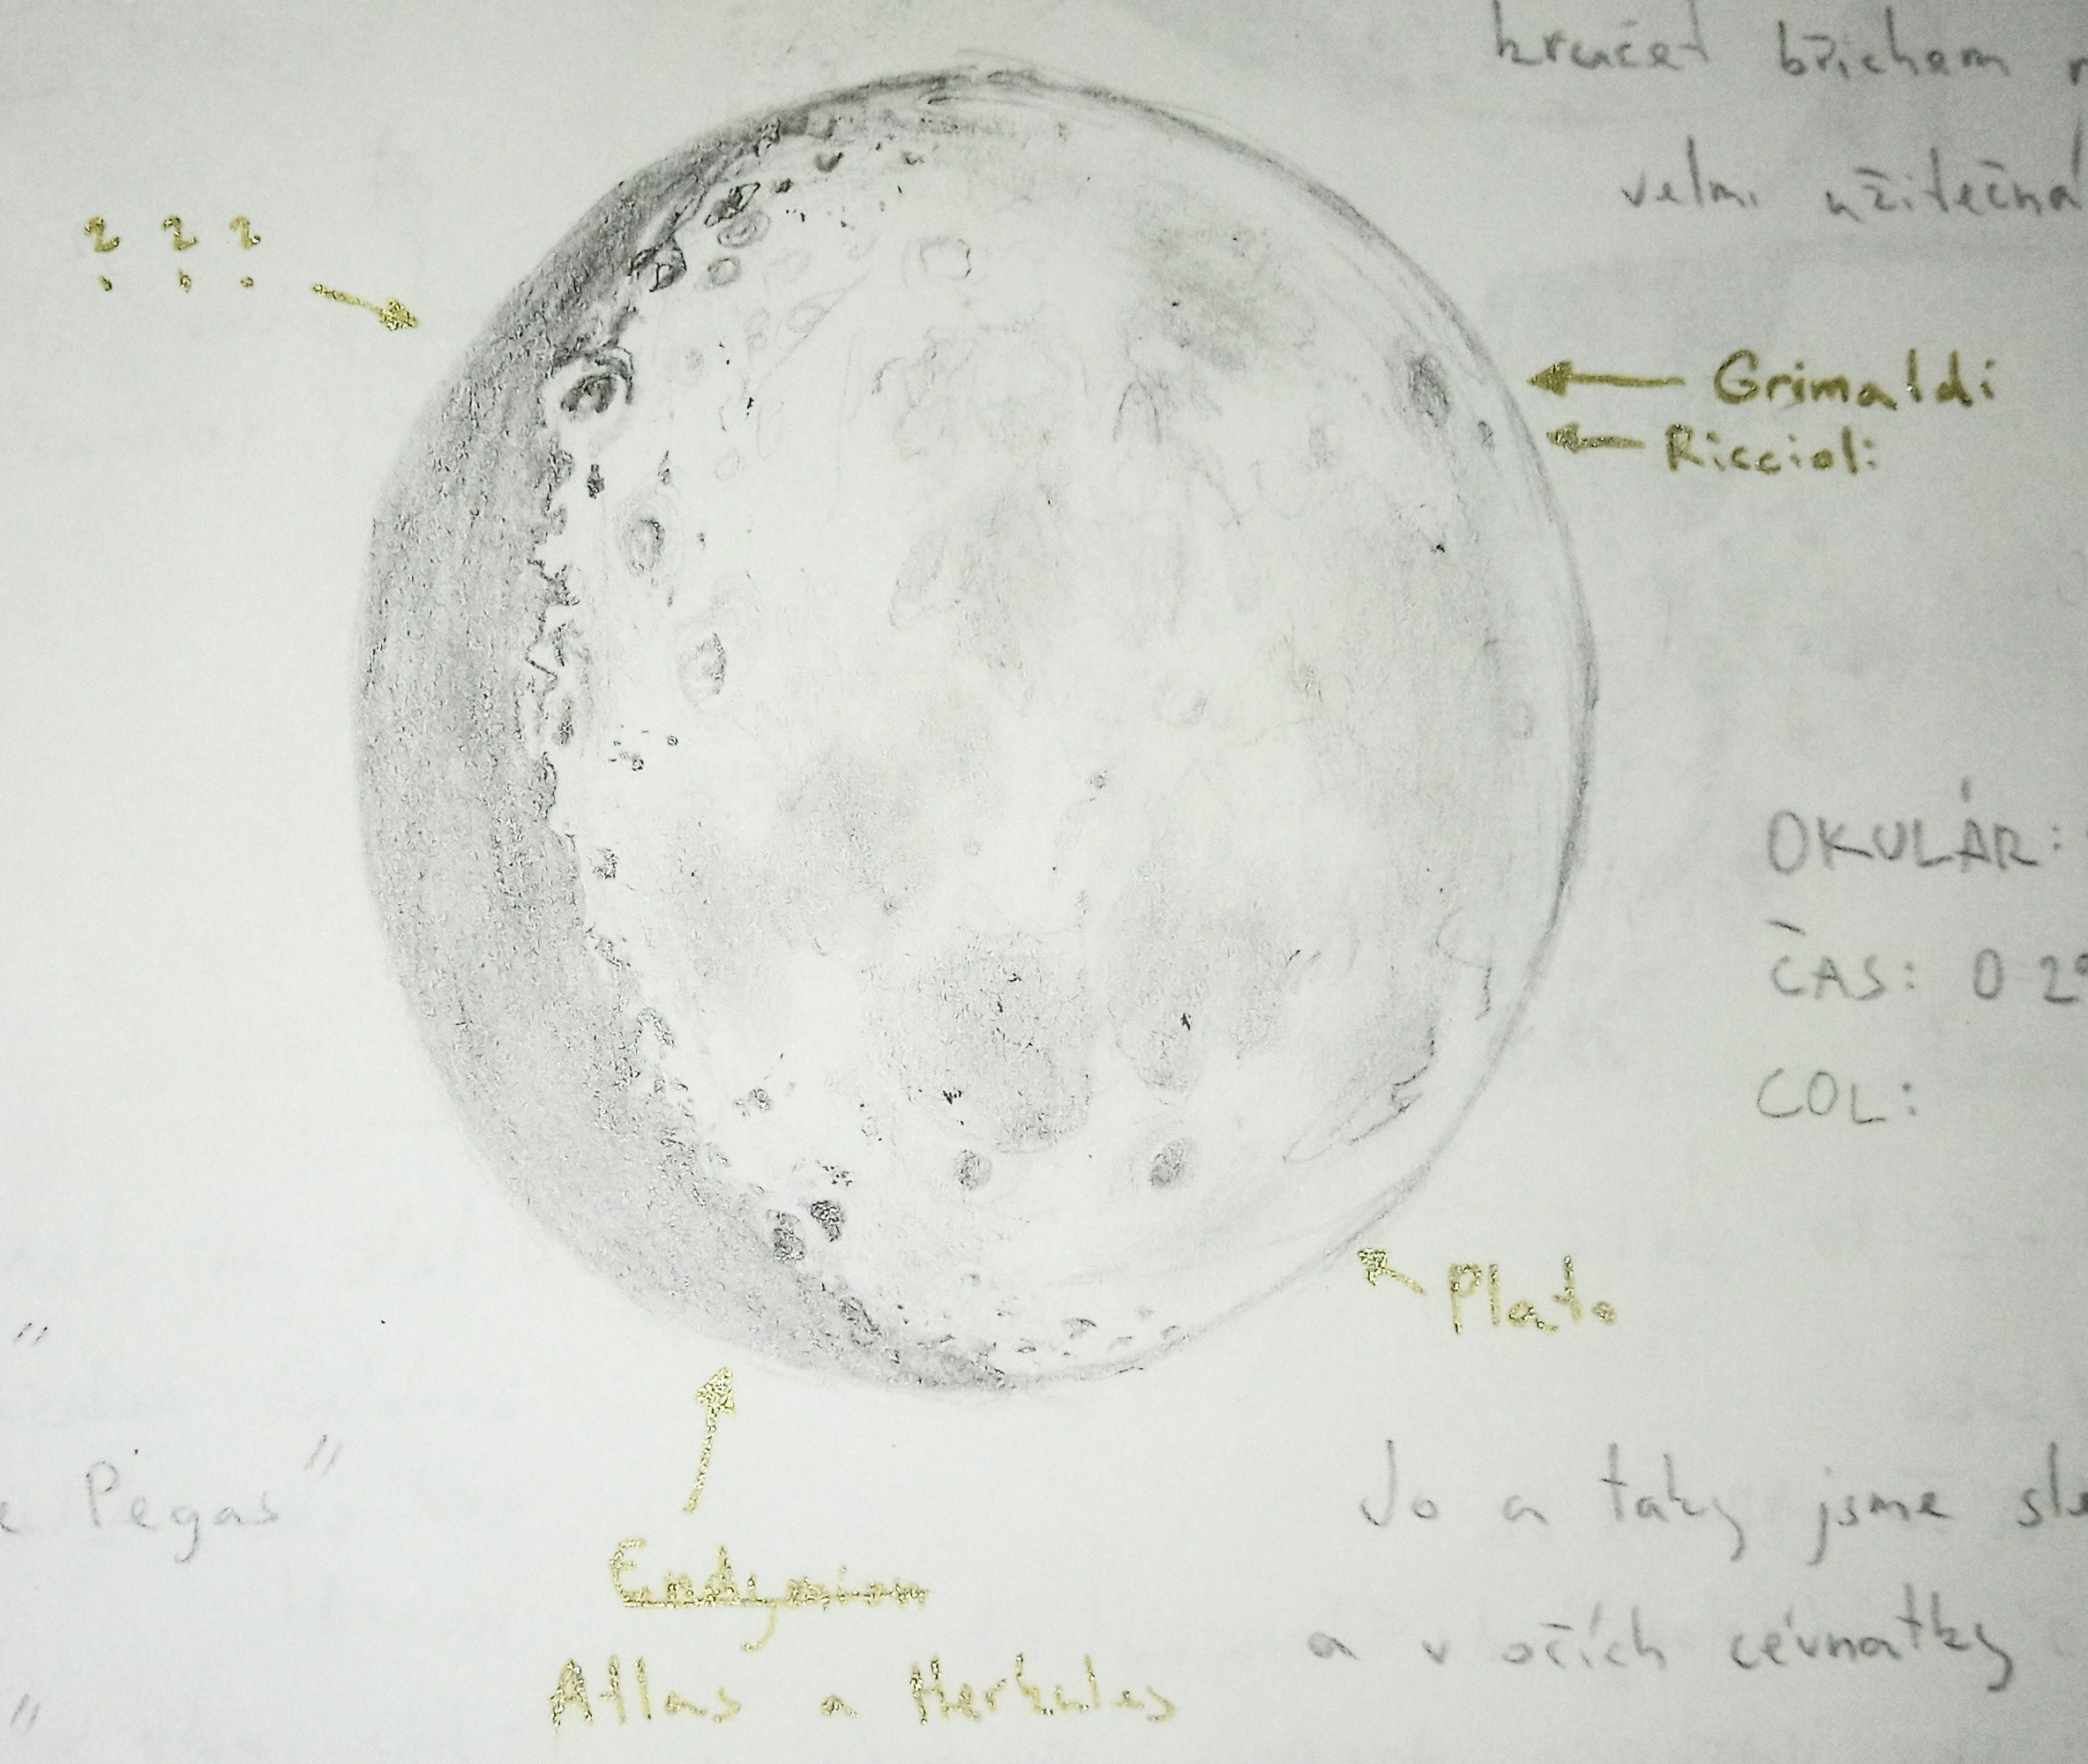 břichem
velmi užitečná
? ? ?
Grimaldi
Riccioli
OKULÁR:
ČAS: 0 29
COL:
Plato
"
Pegas"
Endymion
Atlas a Herkules
"
Jo a taky jsme
a v očích cévnatky